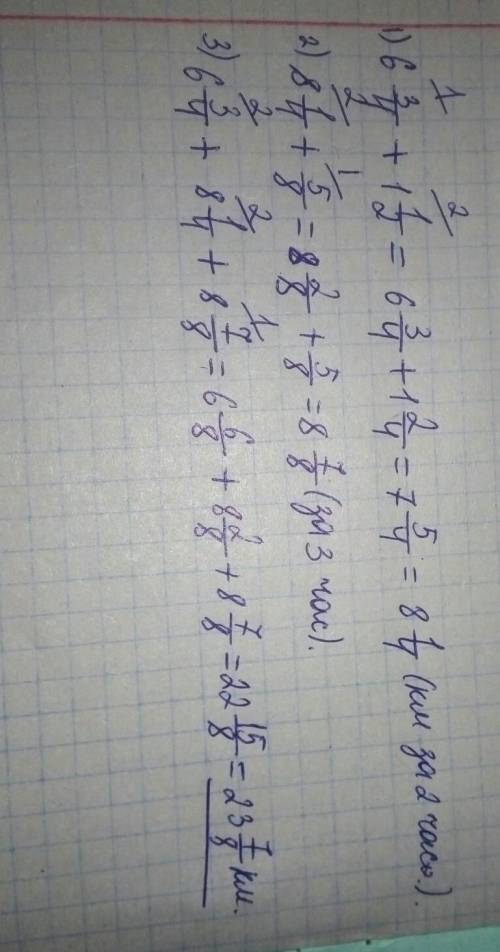 1) 6 3/4 + 1 1/2 = 6 3/4 + 1 2/4 = 7 5/4 = 8 1/4 (км за 2 часа).
2) 8 1/4 + 5/8 = 8 2/8 + 5/8 = 8 7/8 (за 3 час).
3) 6 3/4 + 8 1/4 + 8 7/8 = 6 6/8 + 8 2/8 + 8 7/8 = 22 15/8 = 23 7/8 км.